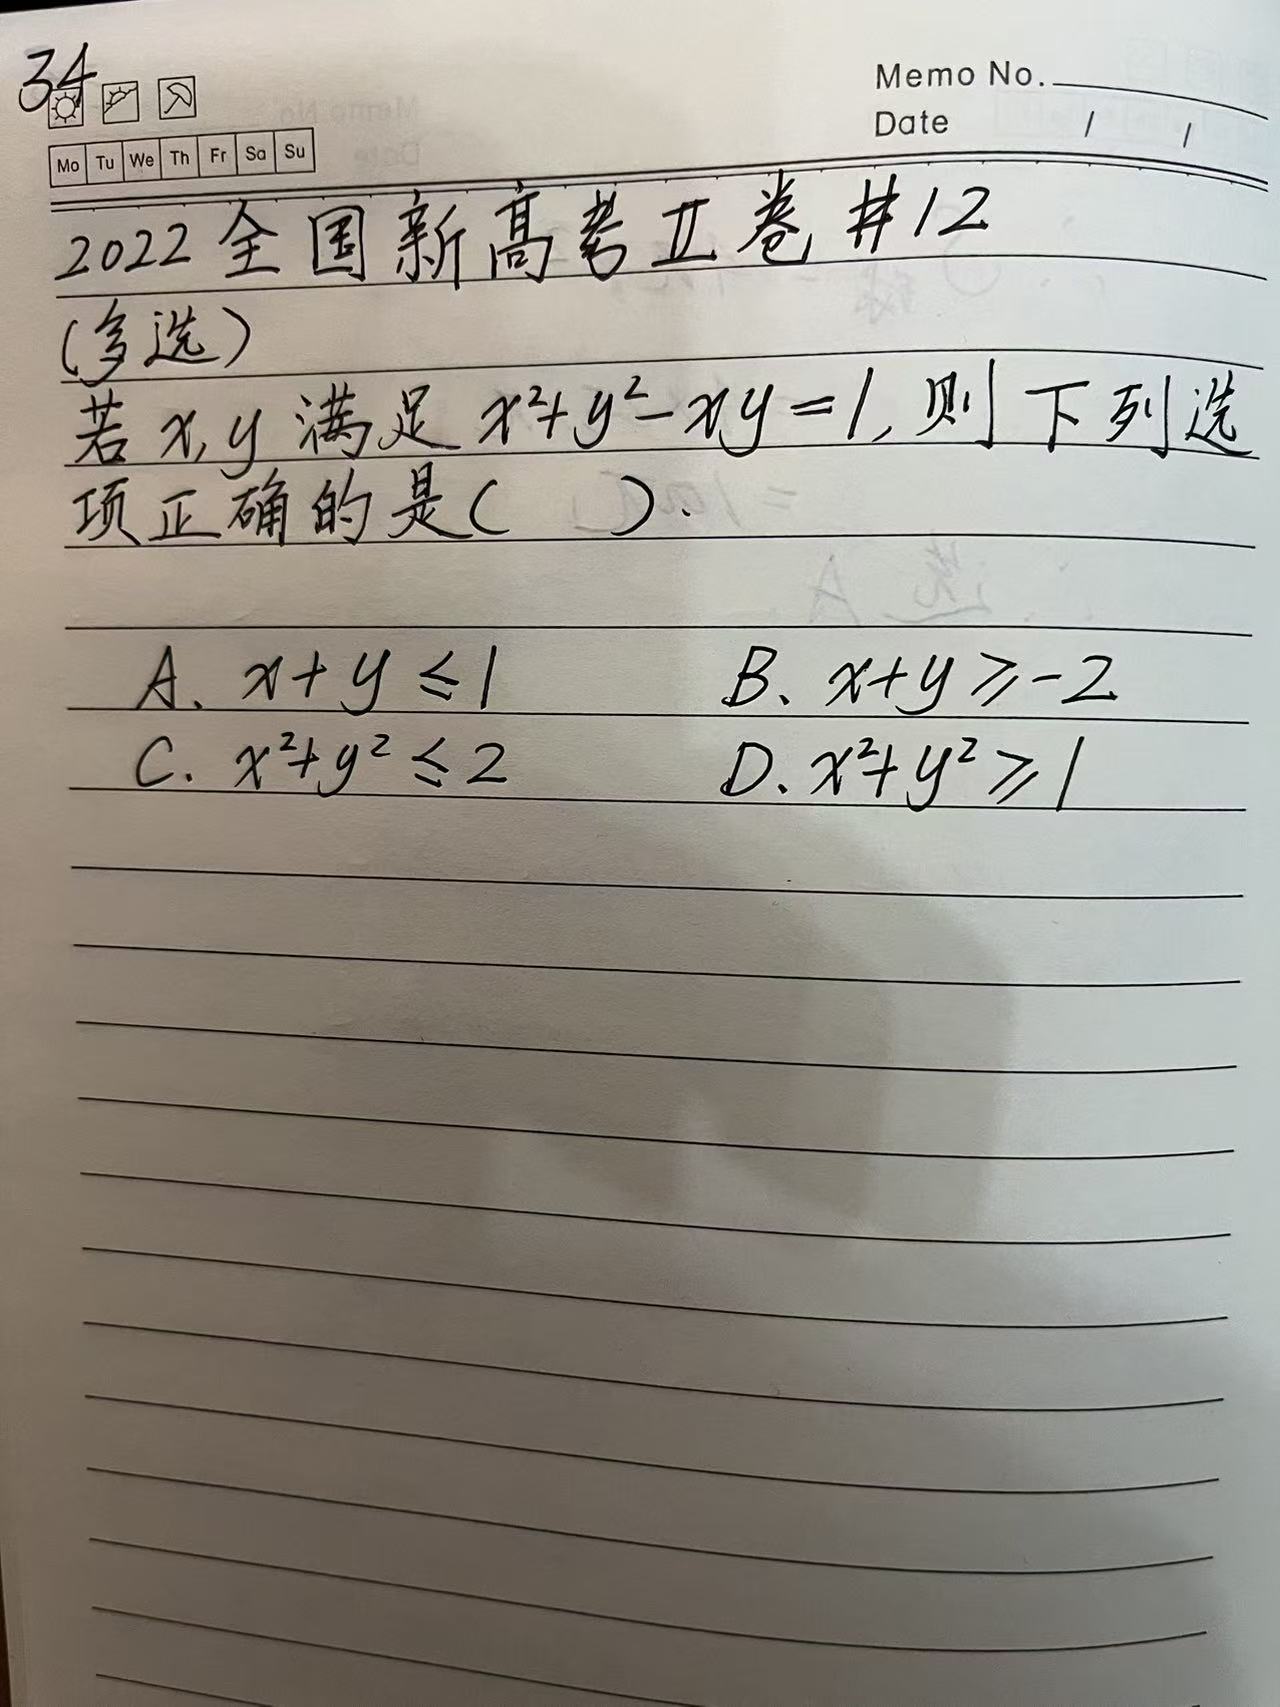 34
Memo No.
Date / /
Mo Tu We Th Fr Sa Su
2022全国新高考II卷#12
(多选)
若x,y满足x²+y²-xy=1,则下列选
项正确的是( ).
A. x+y≤1 B. x+y≥-2
C. x²+y²≤2 D. x²+y²≥1